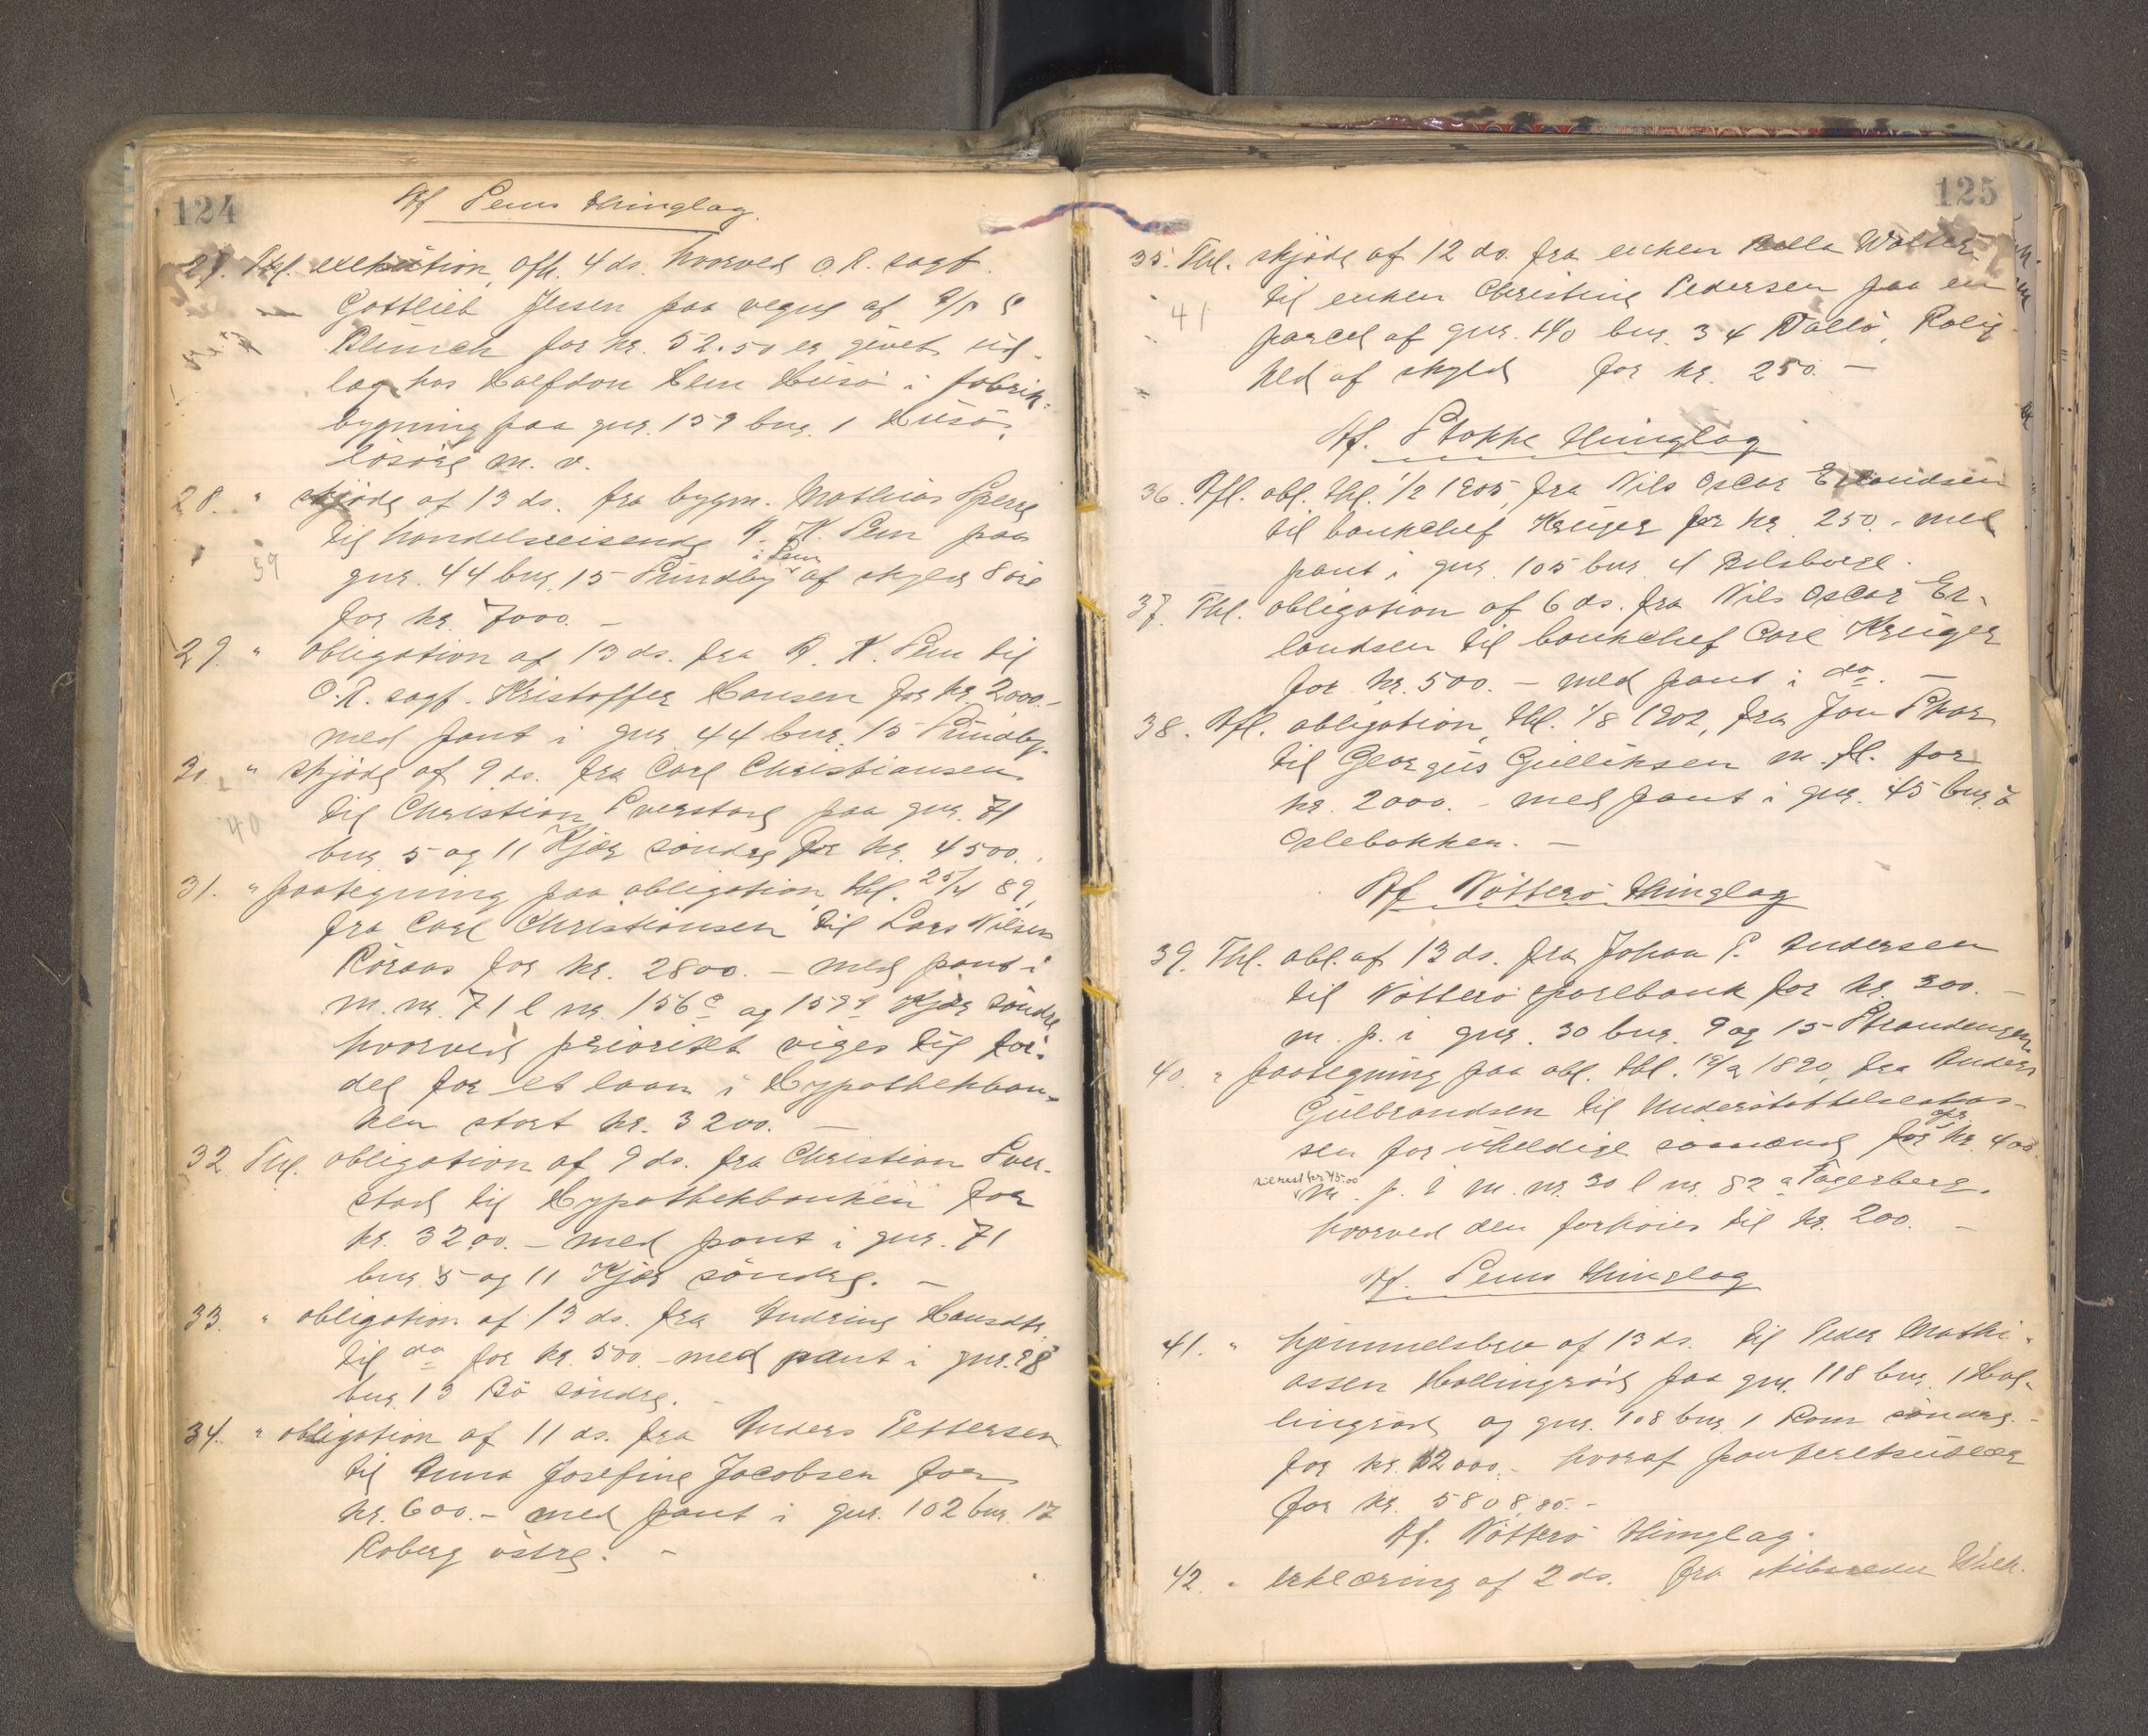 124
Af Sems thinglag.
27. Thl. execution, afh. 4 ds. hvorved O.R. sagf.
Gottlieb Jensen paa vegne af
Blünch for kr. 52.50 er givet ud-
læg hos Halfdan Sem Husø i fabrik-
bygning paa gnr. 159 bnr. 1 Husø,
løsøre m. v.
28. " skjøde af 13 ds. fra bygm. Mathias Sperre
til handelsreisende A. K. Sem paa
59
gnr. 44 bnr. 15 Sundby i Sem af skyld 8 øre
for kr. 7000. –
29. " obligation af 13 ds. fra A. K. Sem til
O.R. sagf. Kristoffer Hansen for kr. 2000.–
med pant i gnr. 44 bnr. 15 Sundby.
30. " skjøde af 9 ds. fra Carl Christiansen
til Christian Sverstad paa gnr. 71
40
bnr. 5 og 11 Kjær søndre for kr. 4500.
31. " paategning paa obligation, thl. 25/4 89,
fra Carl Christiansen til Lars Nilsen
Røraas for kr. 2800. – med pant i
m. nr. 71 l nr. 156 c og 159 Kjær søndre
hvorved prioritet viges til for-
del for et laan i Hypothekban-
ken stort kr. 3200. –
32. Thl. obligation af 9 ds. fra Christian Sver-
stad til Hypothekbanken for
kr. 3200. – med pant i gnr. 71
bnr. 5 og 11 Kjær søndre. –
33. " obligation af 13 ds. fra Andrine Hansdtr.
til do for kr. 500. – med pant i gnr. 98
bnr. 13 Bø søndre. –
34. " obligation af 11 ds. fra Anders Pettersen
til Anna Josefine Jacobsen for
kr. 600.– med pant i gnr. 102 bnr. 17
Roberg østre. –
125
35. Thl. skjøde af 12 ds. fra enken Bolla Wolter
til enken Christine Pedersen paa en
41
parcel af gnr. 140 bnr. 34 Vallø, Rolig
hed af skyld for kr. 250. –
Af. Stokke thinglag
36. Afl. obl. thl. 1/2 1905, fra Nils Oscar Erlandsen
til bankchef Krüger for kr. 250. med
pant i gnr. 105 bnr. 4 Bolsberg.
37. Thl. obligation af 6 ds. fra Nils Oscar Er-
landsen til bankchef Carl Krüger
for kr. 500. – med pant i do. –
38. Afl. obligation, thl. 1/8 1902, fra Jon Skar
til Georgus Gulliksen m. fl. for
kr. 2000. – med pant i gnr. 45 bnr. 7
Oslebakken. –
Af Nøtterø thinglag
39. Thl. obl. af 13 ds. fra Johan P. Andersen
til Nøtterø sparebank for kr. 300. –
m. p. i gnr. 30 bnr. 9 og 15 Strandengen
40. " paategning paa obl. thl. 1890, fra Anders
Gulbrandsen til Understøttelseskas-
sen for uheldige sømænd for kr. 400.
til rest kr. 45.00 m. p. i m. nr. 30 l nr. 82 a Fagerberg.
hvorved den forhøies til kr. 200. –
Af. Sems thinglag
41. " hjemmelsbrev af 13 ds. til Peder Mathi-
assen Hallingrød paa gnr. 118 bnr. 1 Hal-
lingrød og gnr. 108 bnr. 1 Rom søndre. –
for kr. 12000. – hvoraf panteretsudlæg
for kr. 5808.85. –
Af. Nøtterø thinglag.
42. " erklæring af 2 ds. fra skibsreder Wilh.